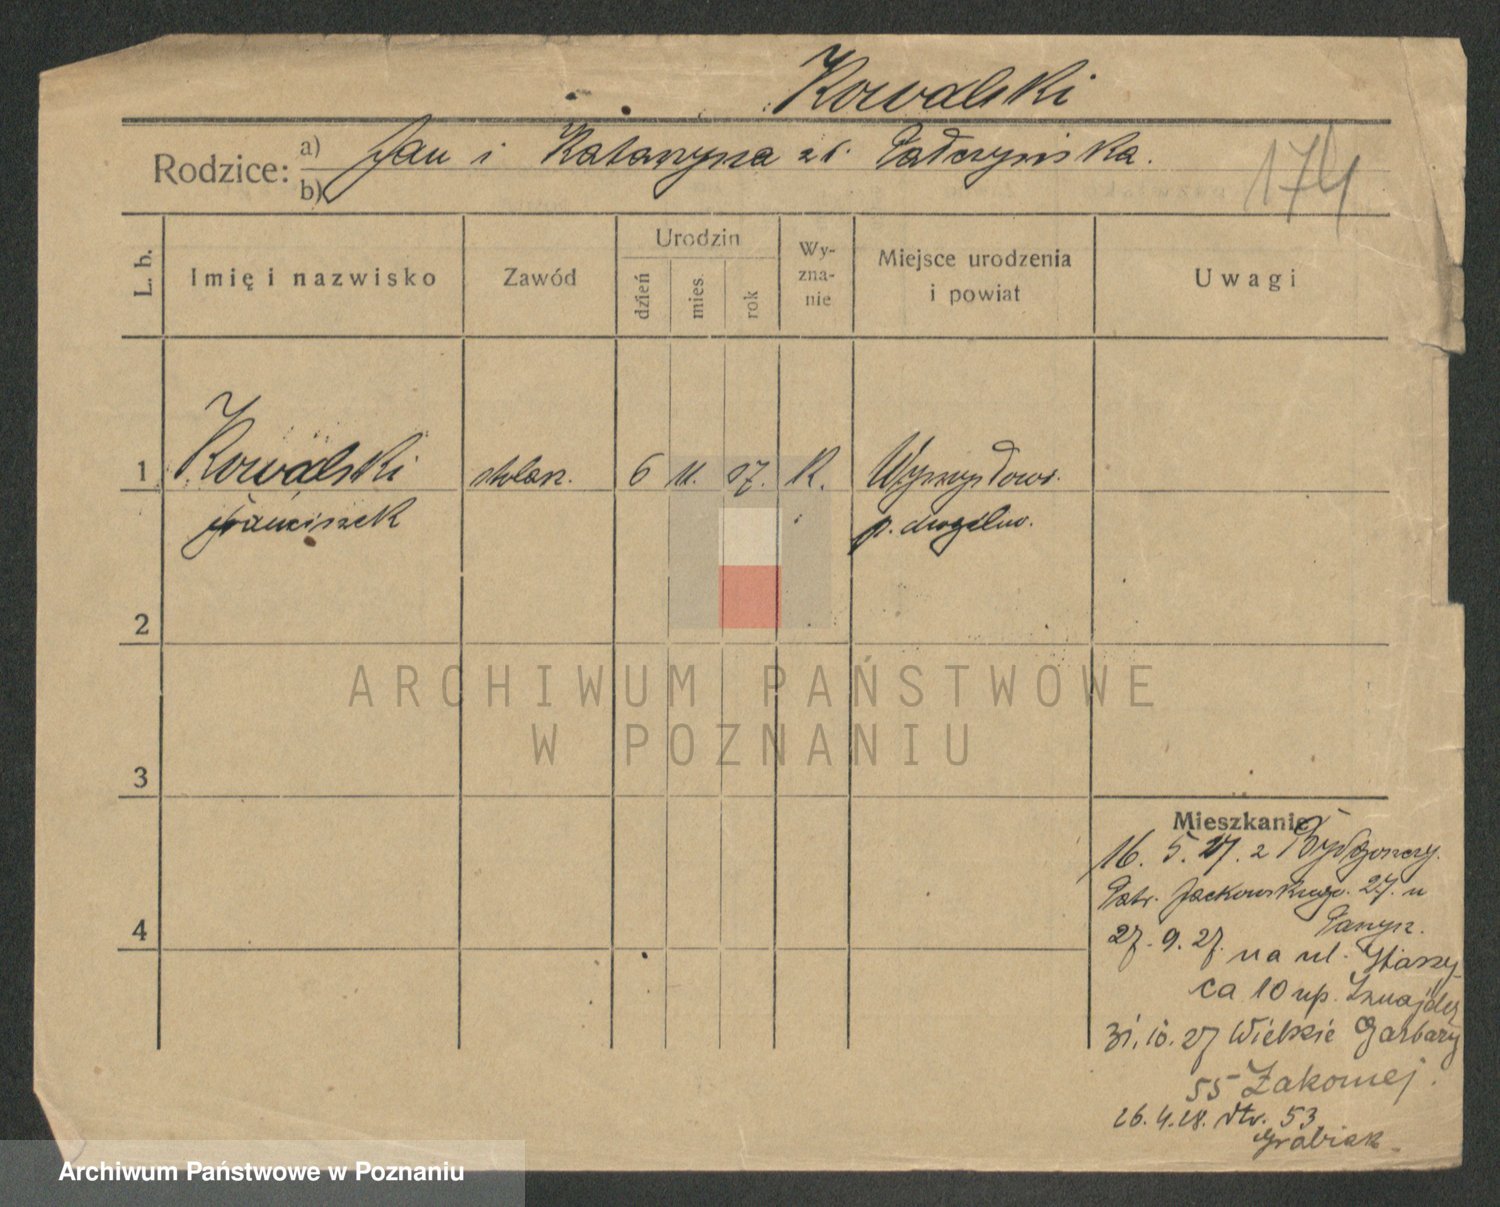 Kowalski
Rodzice: a) Jan i Katarzyna zd. Patrzyńska.
b)
174
L. b.
Imię i nazwisko
Zawód
Urodzin
dzień
mies.
rok
Wy-
zna-
nie
Miejsce urodzenia
i powiat
Uwagi
1
Kowalski
Franciszek
stolarz.
6
11.
07.
K.
2
3
4
ARCHIWUM PAŃSTWOWE
W POZNANIU
Mieszkanie
16. 5. 27. z Bydgoszczy.
Jackowskiego. 27. u
27. 9. 27. na ul. Staszy-
ca 10 up.
31. 10. 27 Wielkie Garbary
55
26. 4. 28. 53
Grabiak
Archiwum Państwowe w Poznaniu